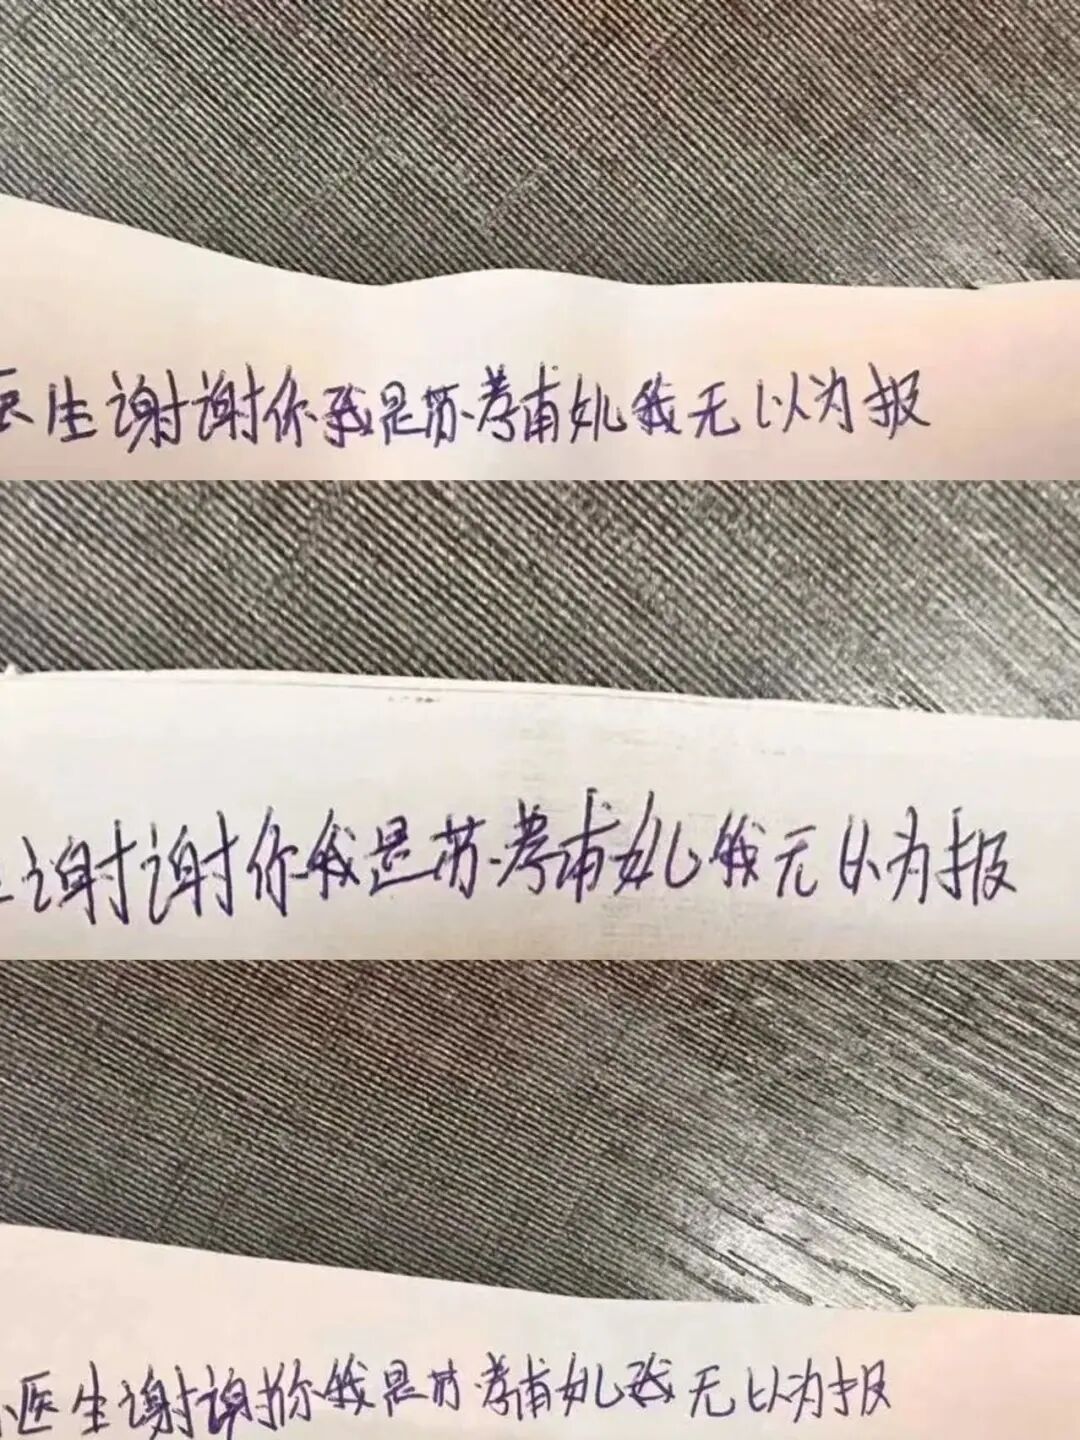 医生谢谢你我是苏考甫女儿我无以为报
谢谢你我是苏考甫女儿我无以为报
医生谢谢你我是苏考甫女儿我无以为报